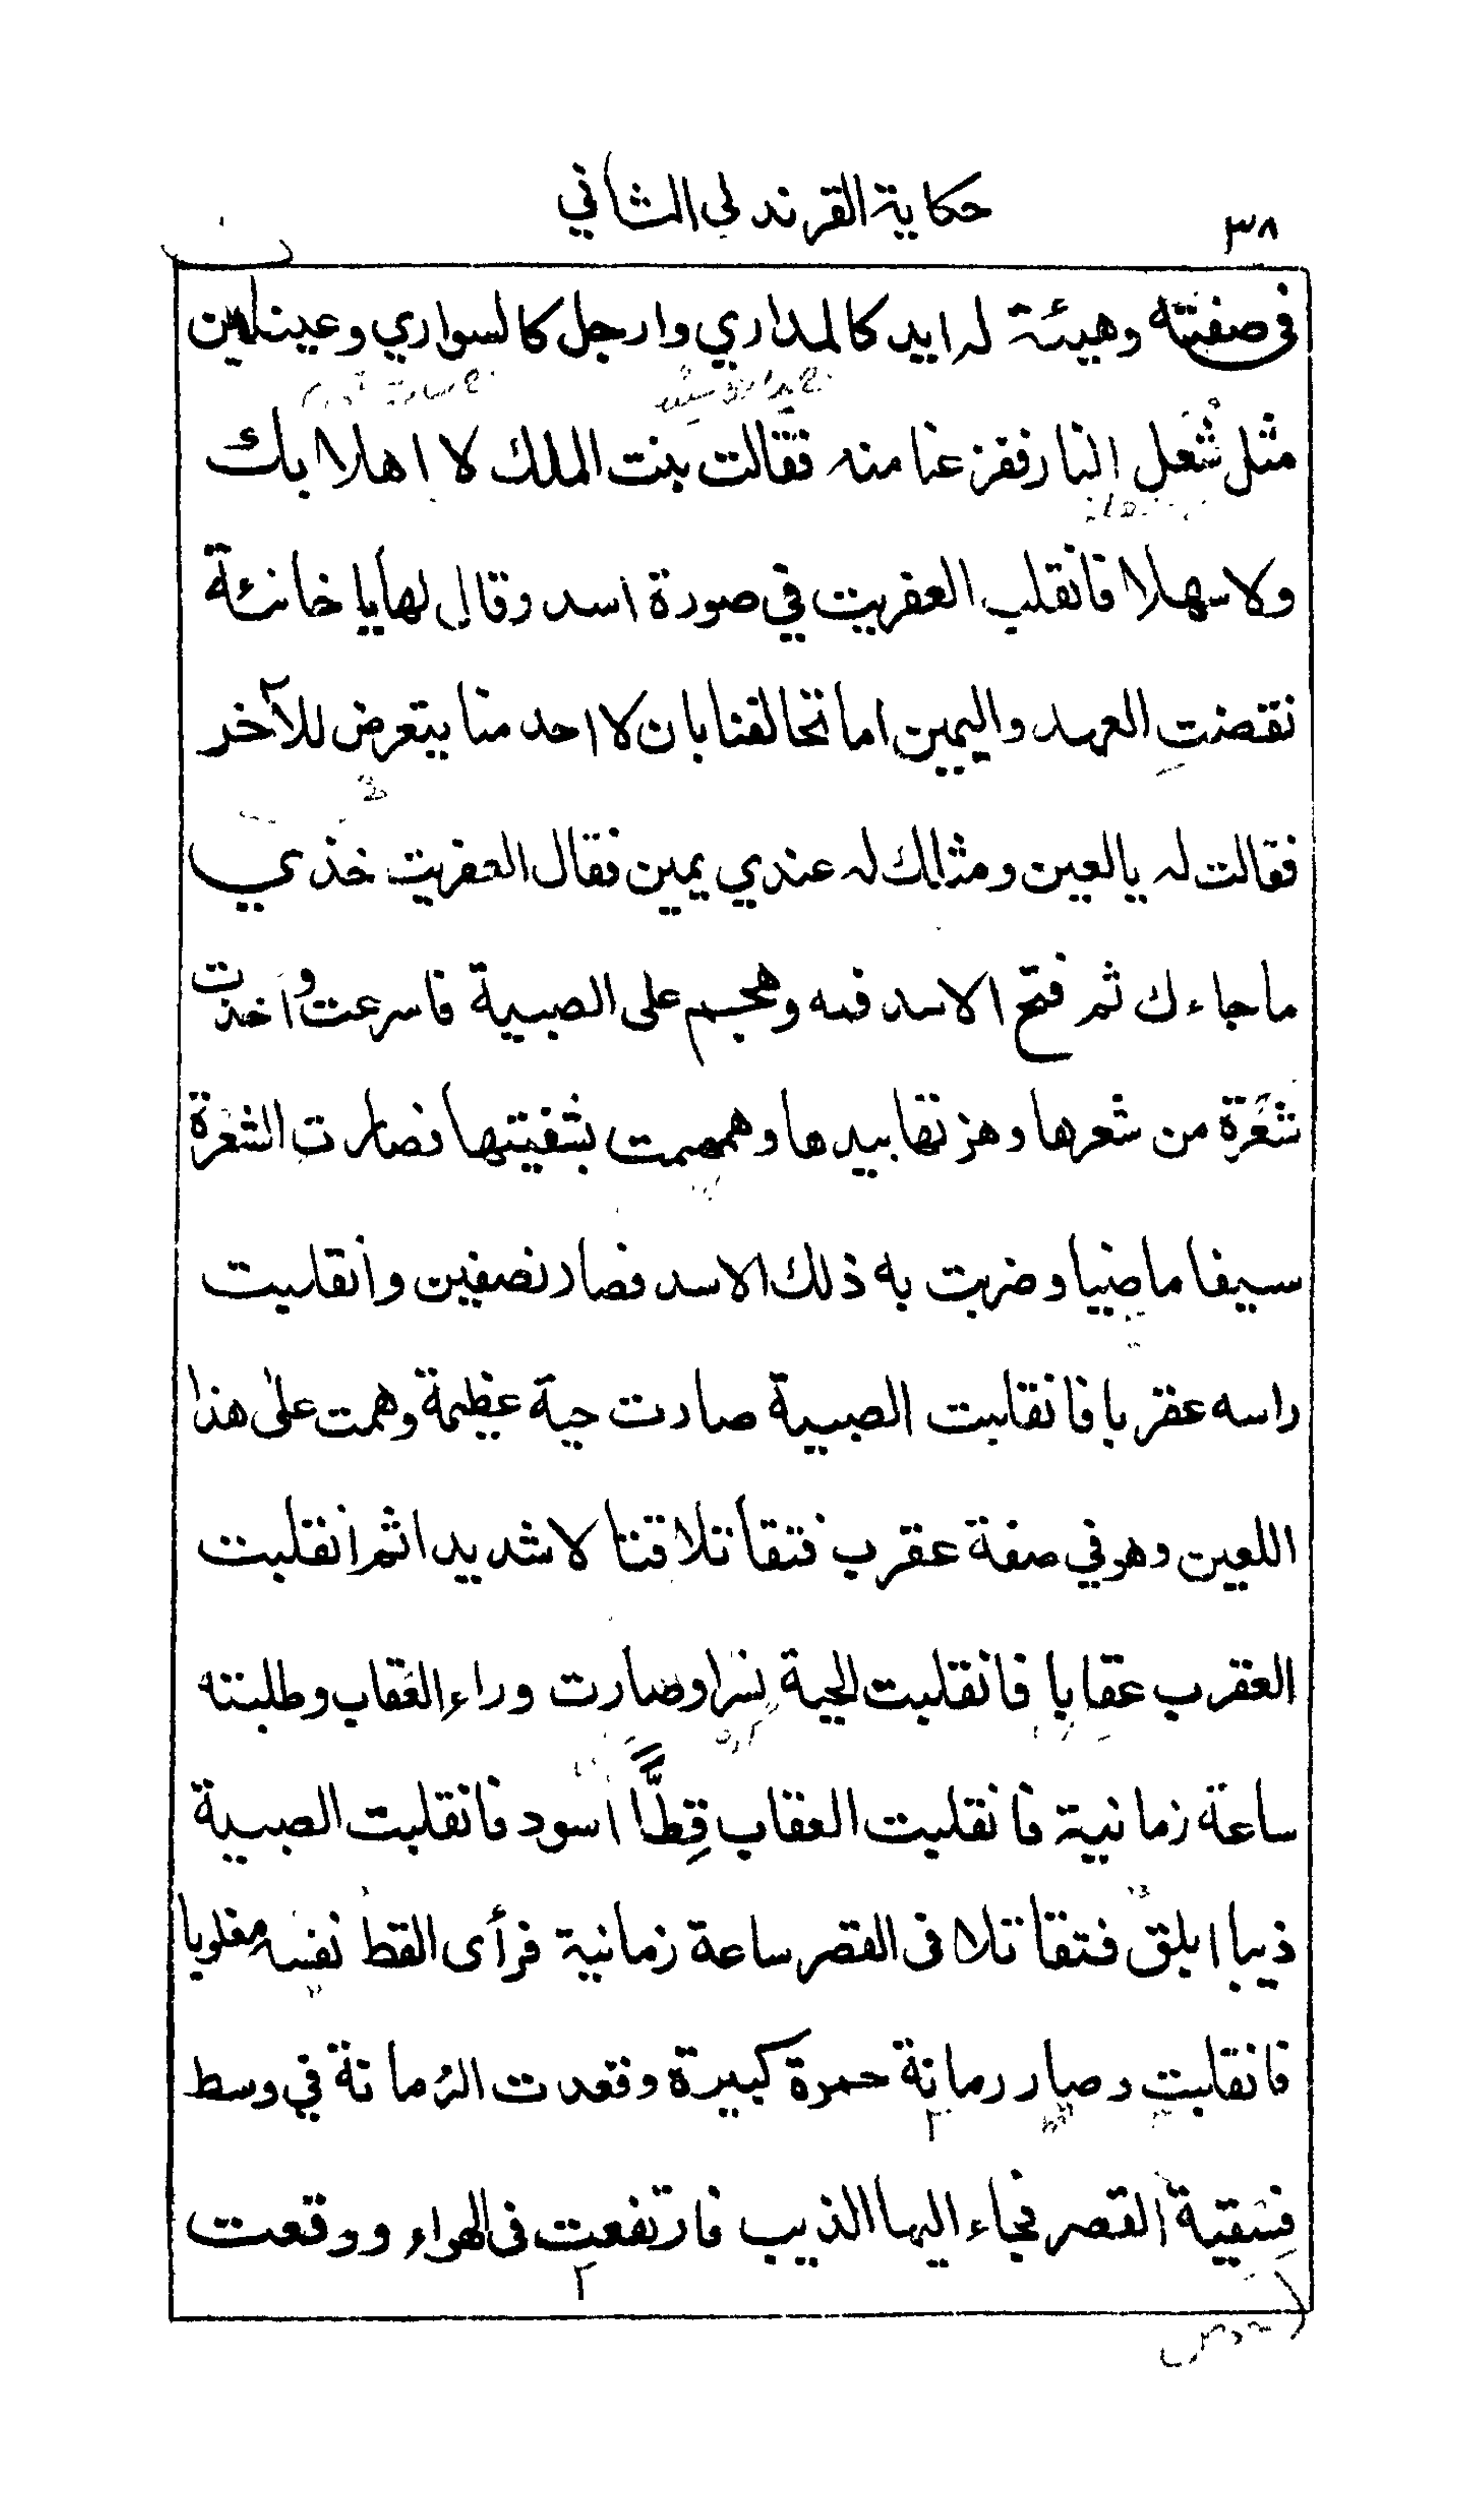 ٣٨
حكاية القرندلى الثاني
فى صفته وهيئة له ايد كالمداري وارجل كالسواري وعيناه ين
مثل شُعَل النار ففز عنا منه فقالت بنت الملك لا اهلا بك
ولا سهلا فانقلب العفريت في صورة اسد وقال لها يا خائنة
نقضتِ العهد واليمين اما تحالفنا بان لا احد منا يتعرض للآخر
فقالت له يا لعين ومثلك له عندي يمين فقال العفريت خذي
ما جاءك ثم فتح الاسد فمه وهجم على الصبية فاسرعت واخذت
شَعَرَة من شعرها وهزتها بيدها وهمهمت بشفيتها فصارت الشعرة
سيفا ماضيا وضربت به ذلك الاسد فصار نصفين وانقلبت
راسه عقربا فانقلبت الصبية صارت حية عظيمة وهمت على هذا
اللعين وهو في صفة عقرب فتقاتلا قتالا شديدا ثم انقلبت
العقرب عقابا فانقلبت الحية نسرا وصارت وراء العقاب وطلبته
ساعة زمانية فانقلبت العقاب قِطًّا اسود فانقلبت الصبية
ذيبا ابلق فتقاتلا فى القصر ساعة زمانية فرأى القط نفسه مغلوبا
فانقلبت وصار رمانة حمرة كبيرة وقعدت الرمانة في وسط
فسقية القصر فجاء اليها الذيب فارتفعت فى الهواء ووقعت